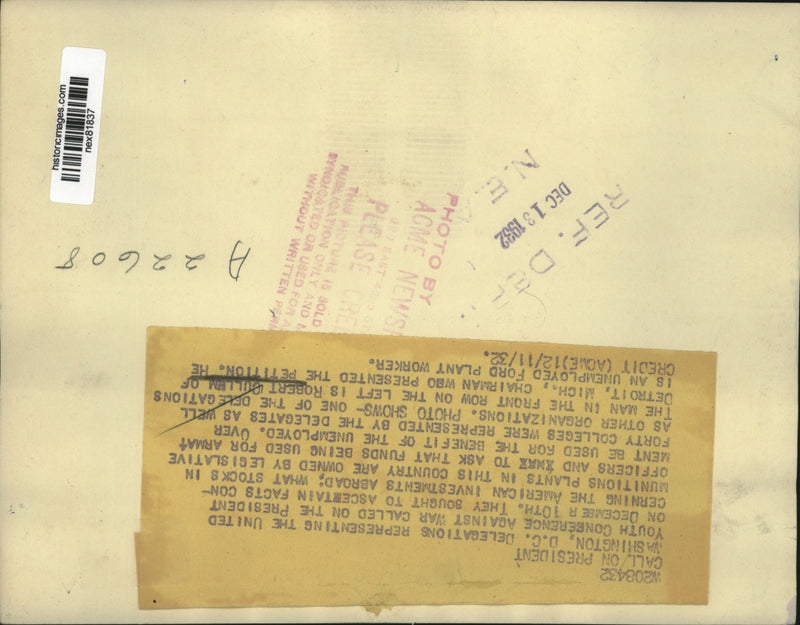 historicimages.com
nex81837
A 22608
PHOTO BY
ACME
PLEASE
THIS PICTURE IS SOLD
PUBLICATION ONLY AND
SYNDICATED OR USED FOR
WITHOUT WRITTEN
REF. DE
DEC 13 1932
N. E.
W208432
CALL/ON PRESIDENT
WASHINGTON, D.C. DELEGATIONS REPRESENTING THE UNITED
YOUTH CONFERENCE AGAINST WAR CALLED ON THE PRESIDENT
ON DECEMBER 10TH. THEY SOUGHT TO ASCERTAIN FACTS CON-
CERNING THE AMERICAN INVESTMENTS ABROAD; WHAT STOCKS IN
MUNITIONS PLANTS IN THIS COUNTRY ARE OWNED BY LEGISLATIVE
OFFICERS AND TO ASK THAT FUNDS BEING USED FOR ARMA-
MENT BE USED FOR THE BENEFIT OF THE UNEMPLOYED. OVER
FORTY COLLEGES WERE REPRESENTED BY THE DELEGATES AS WELL
AS OTHER ORGANIZATIONS. PHOTO SHOWS- ONE OF THE DELEGATIONS
THE MAN IN THE FRONT ROW ON THE LEFT IS ROBERT CULLEN OF
DETROIT, MICH., CHAIRMAN WHO PRESENTED THE PETITION. HE
IS AN UNEMPLOYED FORD PLANT WORKER.
CREDIT (ACME)12/11/32.